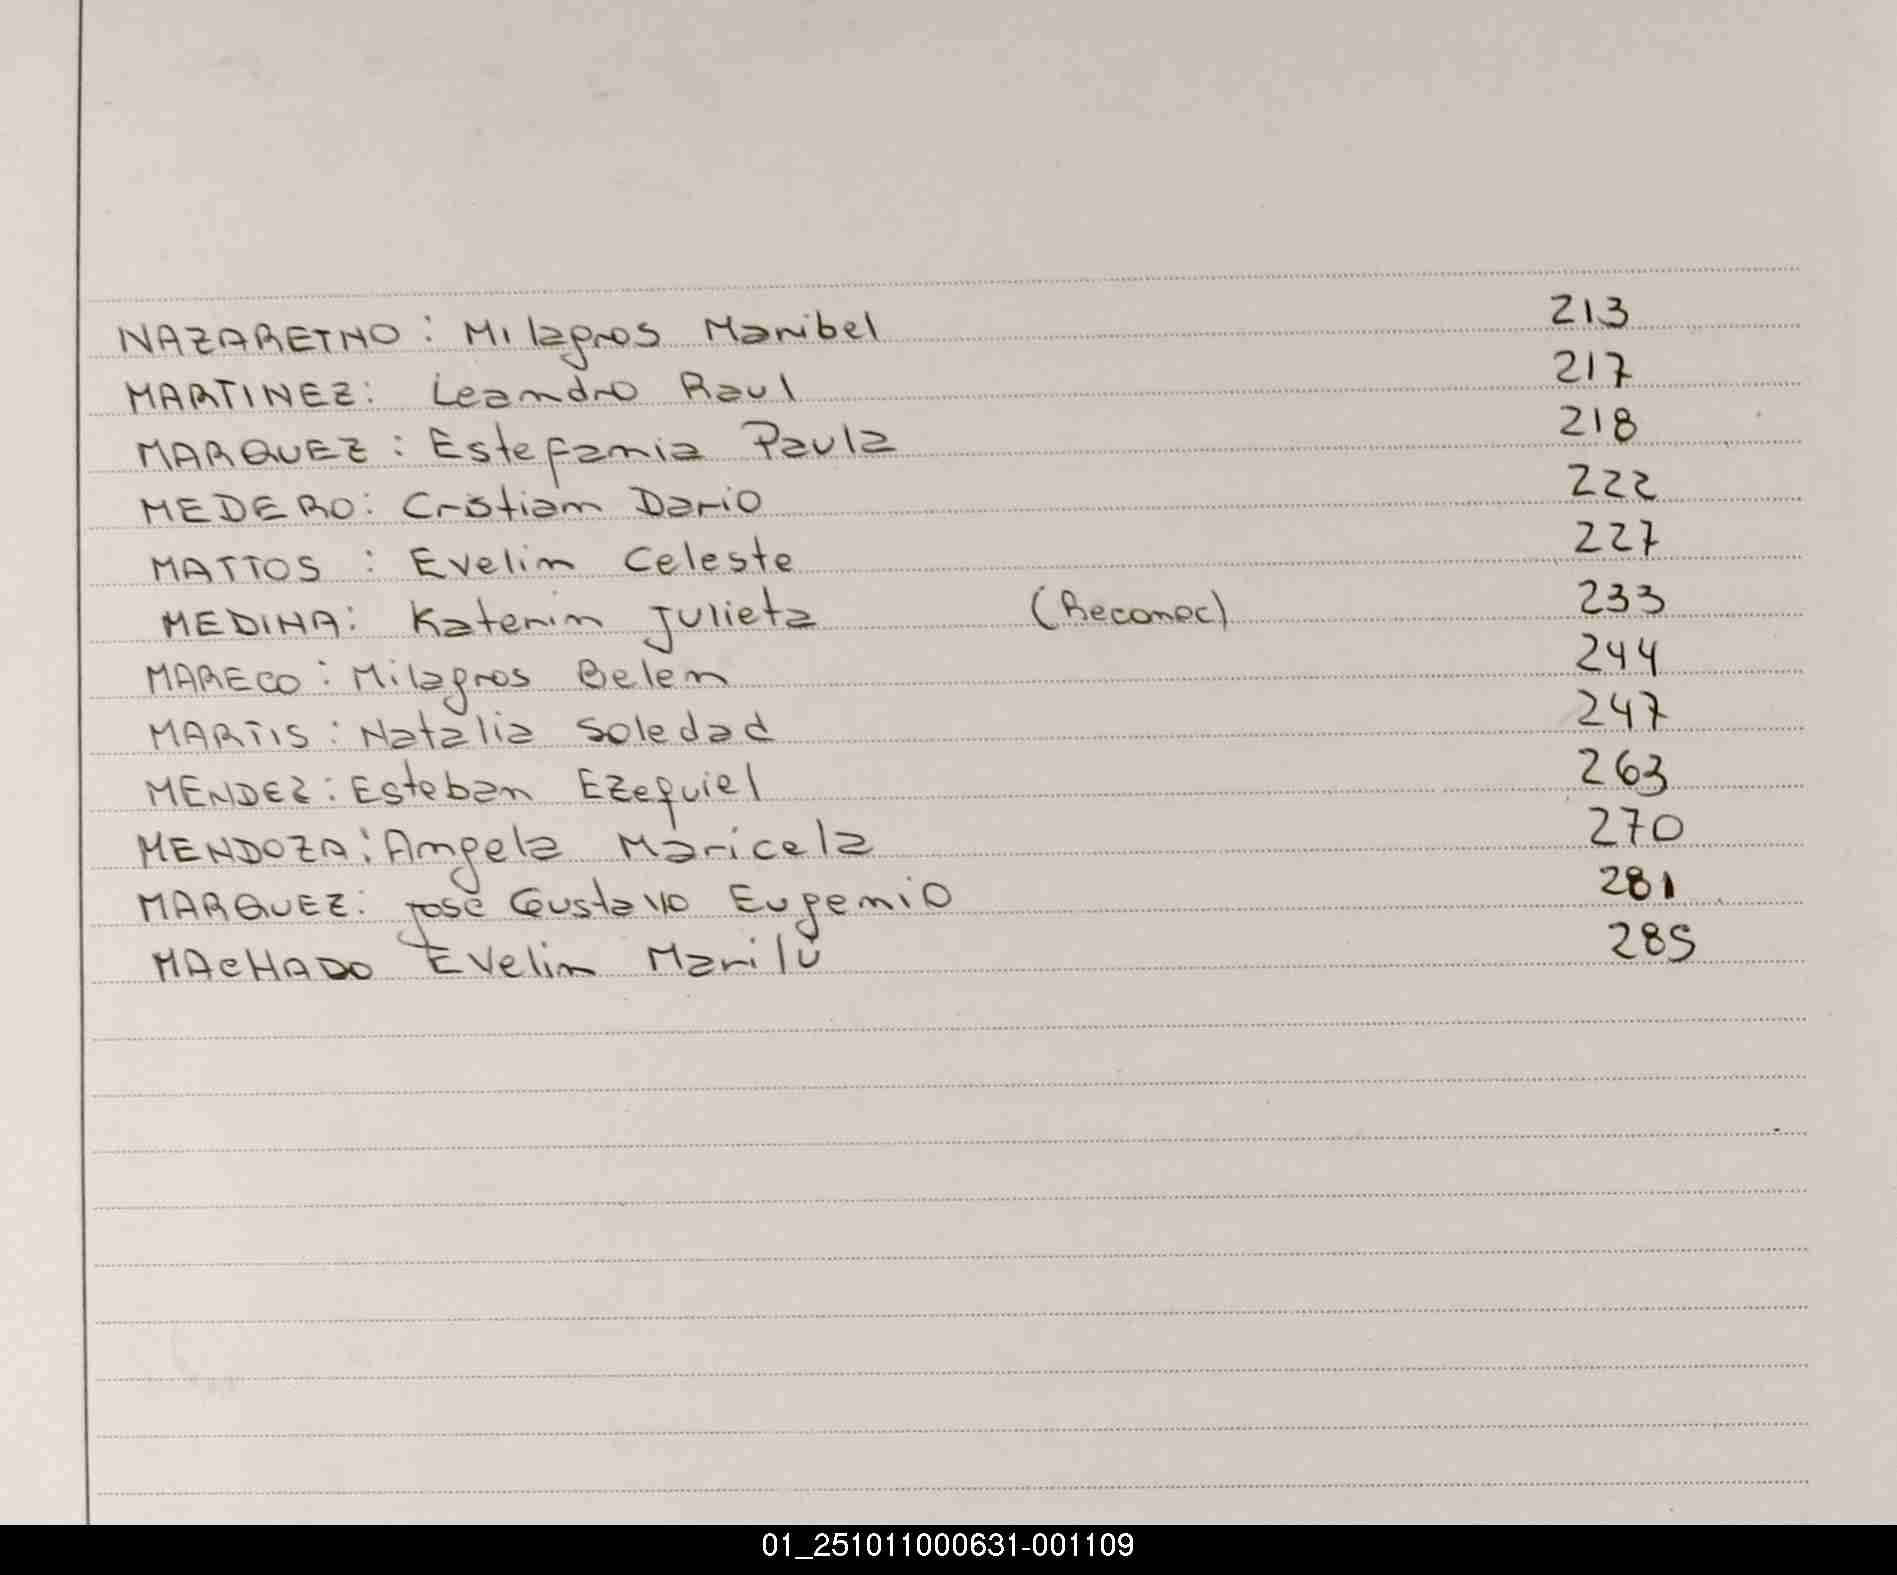 NAZARETNO: Milagros Maribel 213
MARTINEZ: Leandro Raul 217
MARQUEZ: Estefania Paula 218
MEDERO: Cristian Dario 222
MATTOS: Evelin Celeste 227
MEDINA: Katerin Julieta (Reconoc) 233
MARECO: Milagros Belen 244
MARTIS: Natalia Soledad 247
MENDEZ: Esteban Ezequiel 263
MENDOZA: Angela Maricela 270
MARQUEZ: José Gustavo Eugenio 281
MACHADO Evelin Marilú 285
01_251011000631-001109